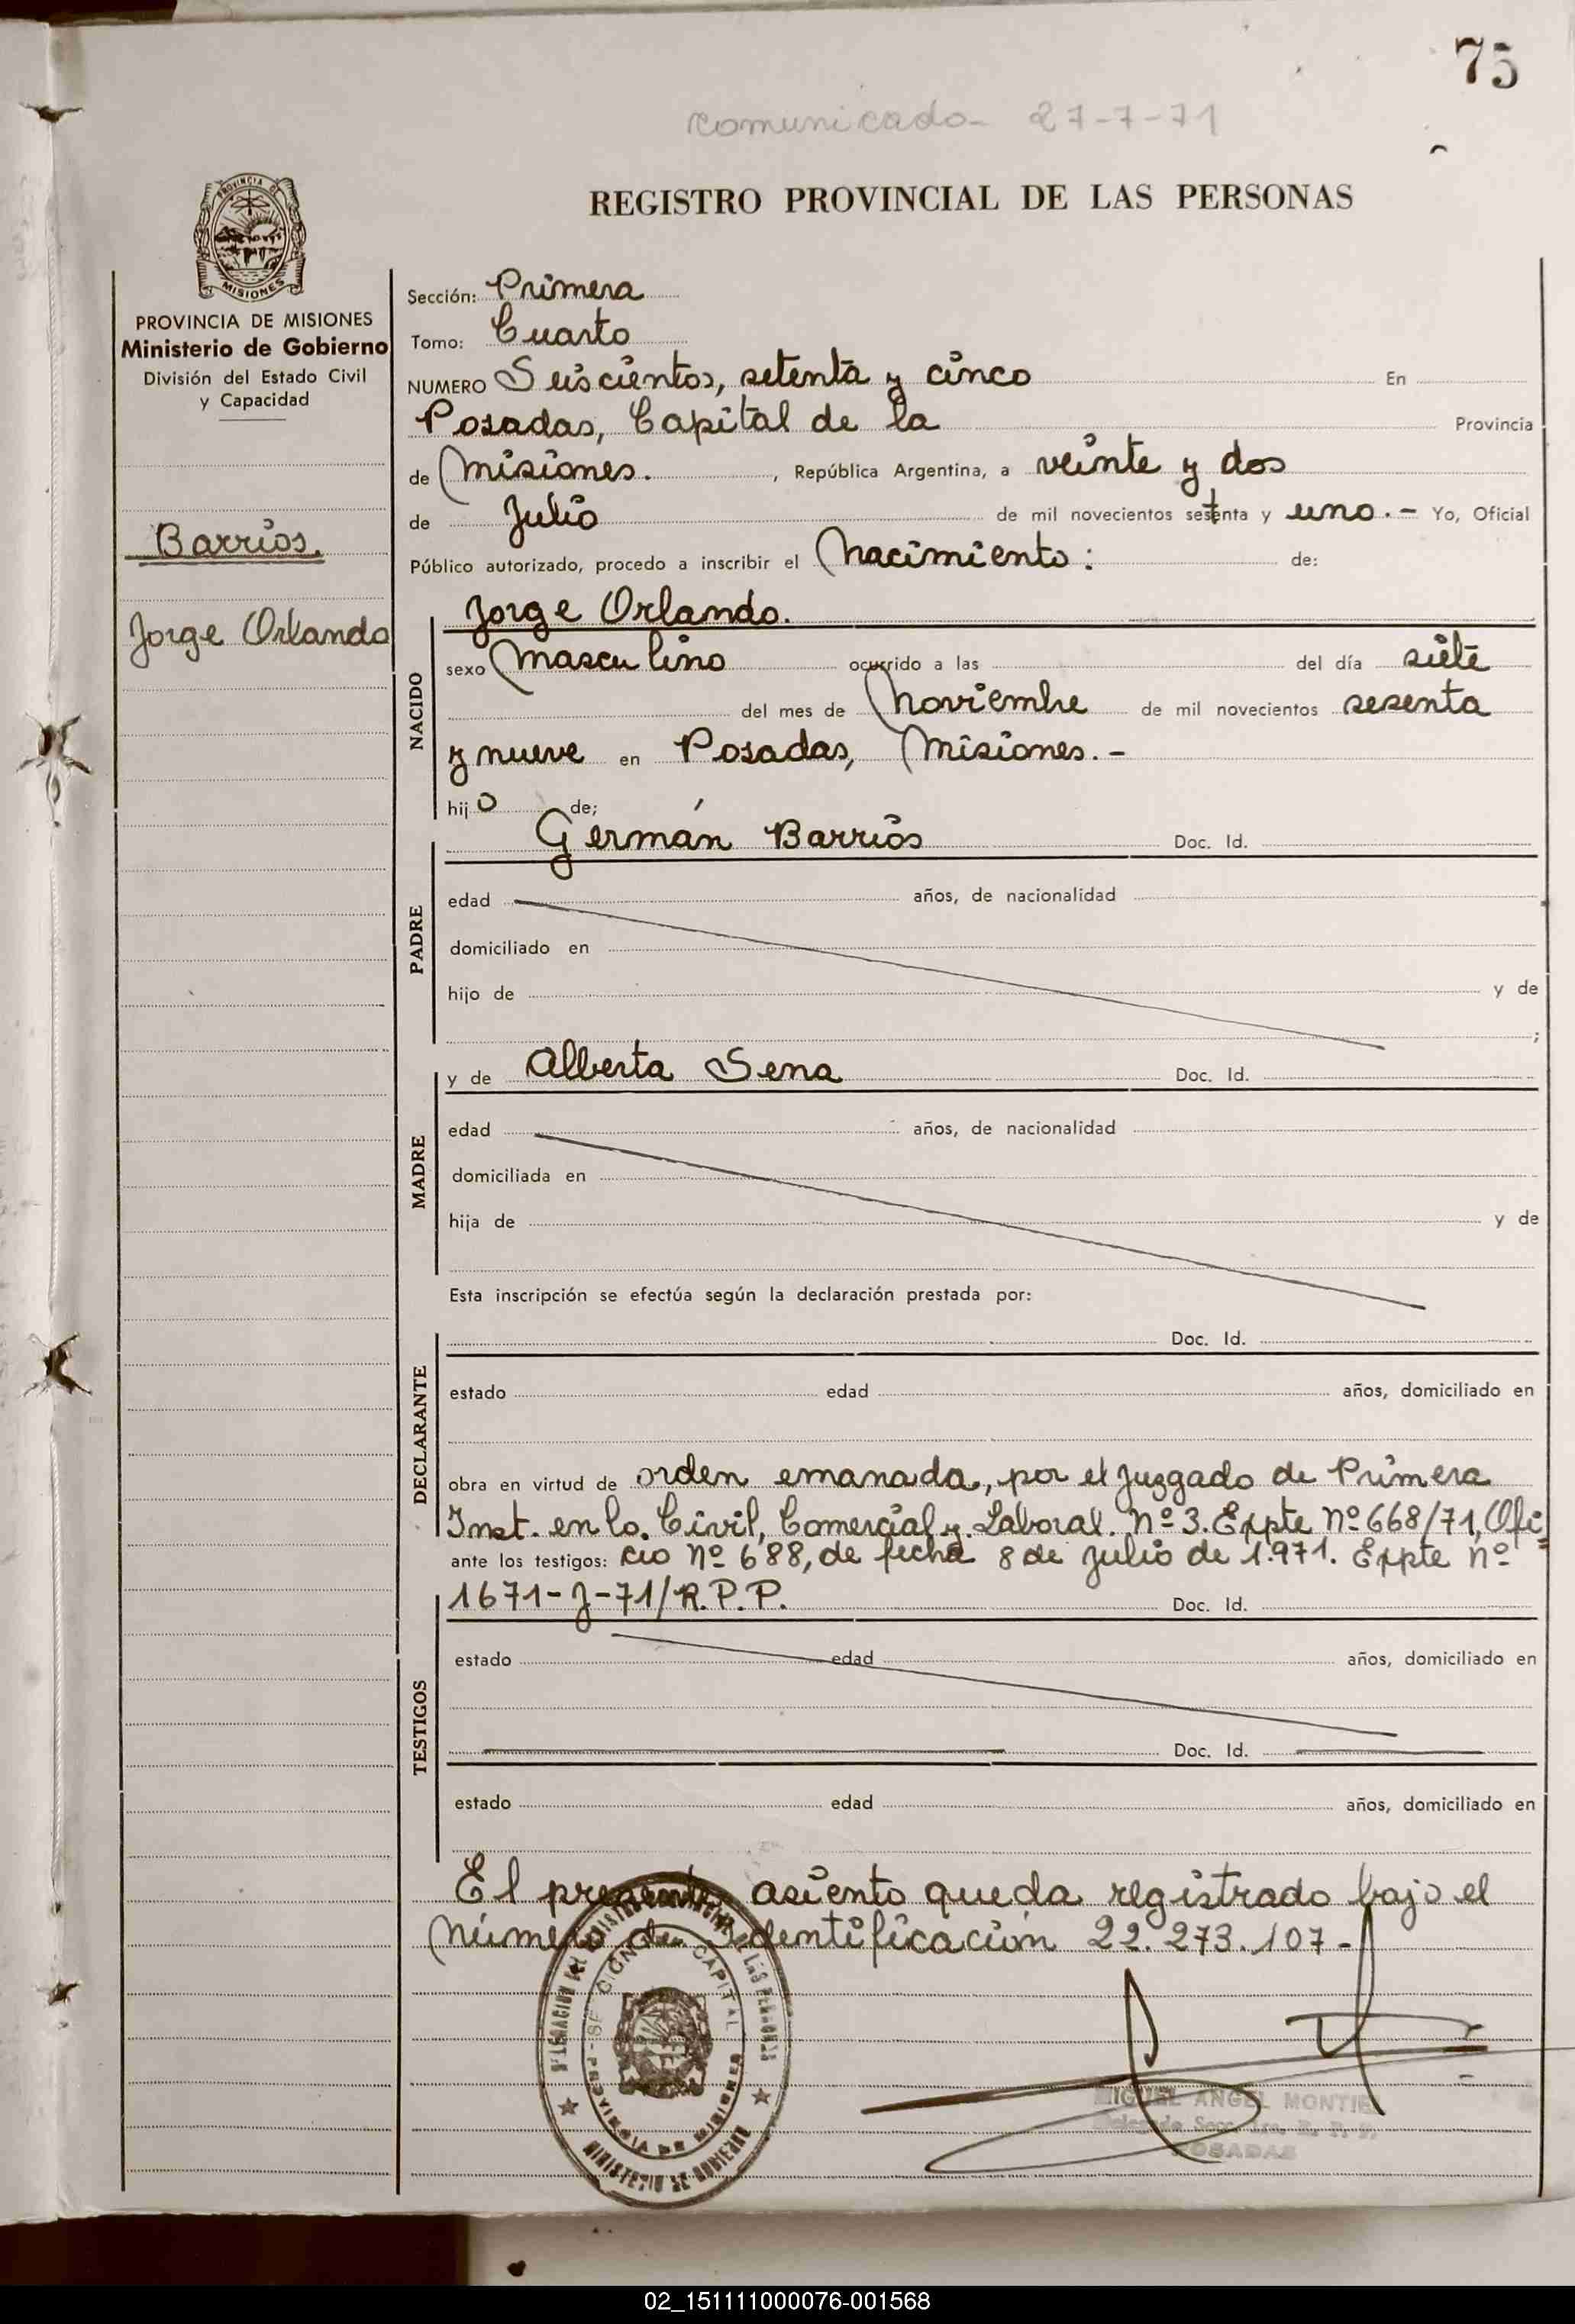 75
comunicado- 27-7-71
REGISTRO PROVINCIAL DE LAS PERSONAS
PROVINCIA DE MISIONES
PROVINCIA DE MISIONES
Ministerio de Gobierno
División del Estado Civil
y Capacidad
Barrios.
Jorge Orlando
Sección: Primera
Tomo: Cuarto
NUMERO Seiscientos, setenta y cinco En
Posadas, Capital de la Provincia
de Misiones. , República Argentina, a veinte y dos
de Julio de mil novecientos setenta y uno.- Yo, Oficial
Público autorizado, procedo a inscribir el Nacimiento: de:
NACIDO
Jorge Orlando.
sexo Masculino ocurrido a las del día siete
del mes de Noviembre de mil novecientos sesenta
y nueve en Posadas, Misiones.-
hijo de;
PADRE
Germán Barrios Doc. Id.
edad años, de nacionalidad
domiciliado en
hijo de y de
;
MADRE
y de Alberta Sena Doc. Id.
edad años, de nacionalidad
domiciliada en
hija de y de
Esta inscripción se efectúa según la declaración prestada por:
DECLARANTE
Doc. Id.
estado edad años, domiciliado en
obra en virtud de orden emanada, por el Juzgado de Primera
Inst. en lo Civil, Comercial y Laboral. Nº 3. Expte Nº 668/71, Ofi=
ante los testigos: cio Nº 688, de fecha 8 de Julio de 1.971. Expte Nº
1671-J-71/R.P.P. Doc. Id.
TESTIGOS
estado edad años, domiciliado en
Doc. Id.
estado edad años, domiciliado en
El presente asiento queda registrado bajo el
Número de Identificación 22.273.107-
CAPITAL
PROVINCIA DE MISIONES
MINISTERIO DE GOBIERNO
MIGUEL ANGEL MONTIEL
Delegado Secc. 1ra. R. P. P.
POSADAS
02_151111000076-001568